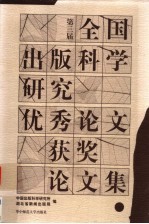 第三届
全国
出版科学
研究
优秀论文
获奖
论文集
中国出版科学研究所
编
华中师范大学出版社